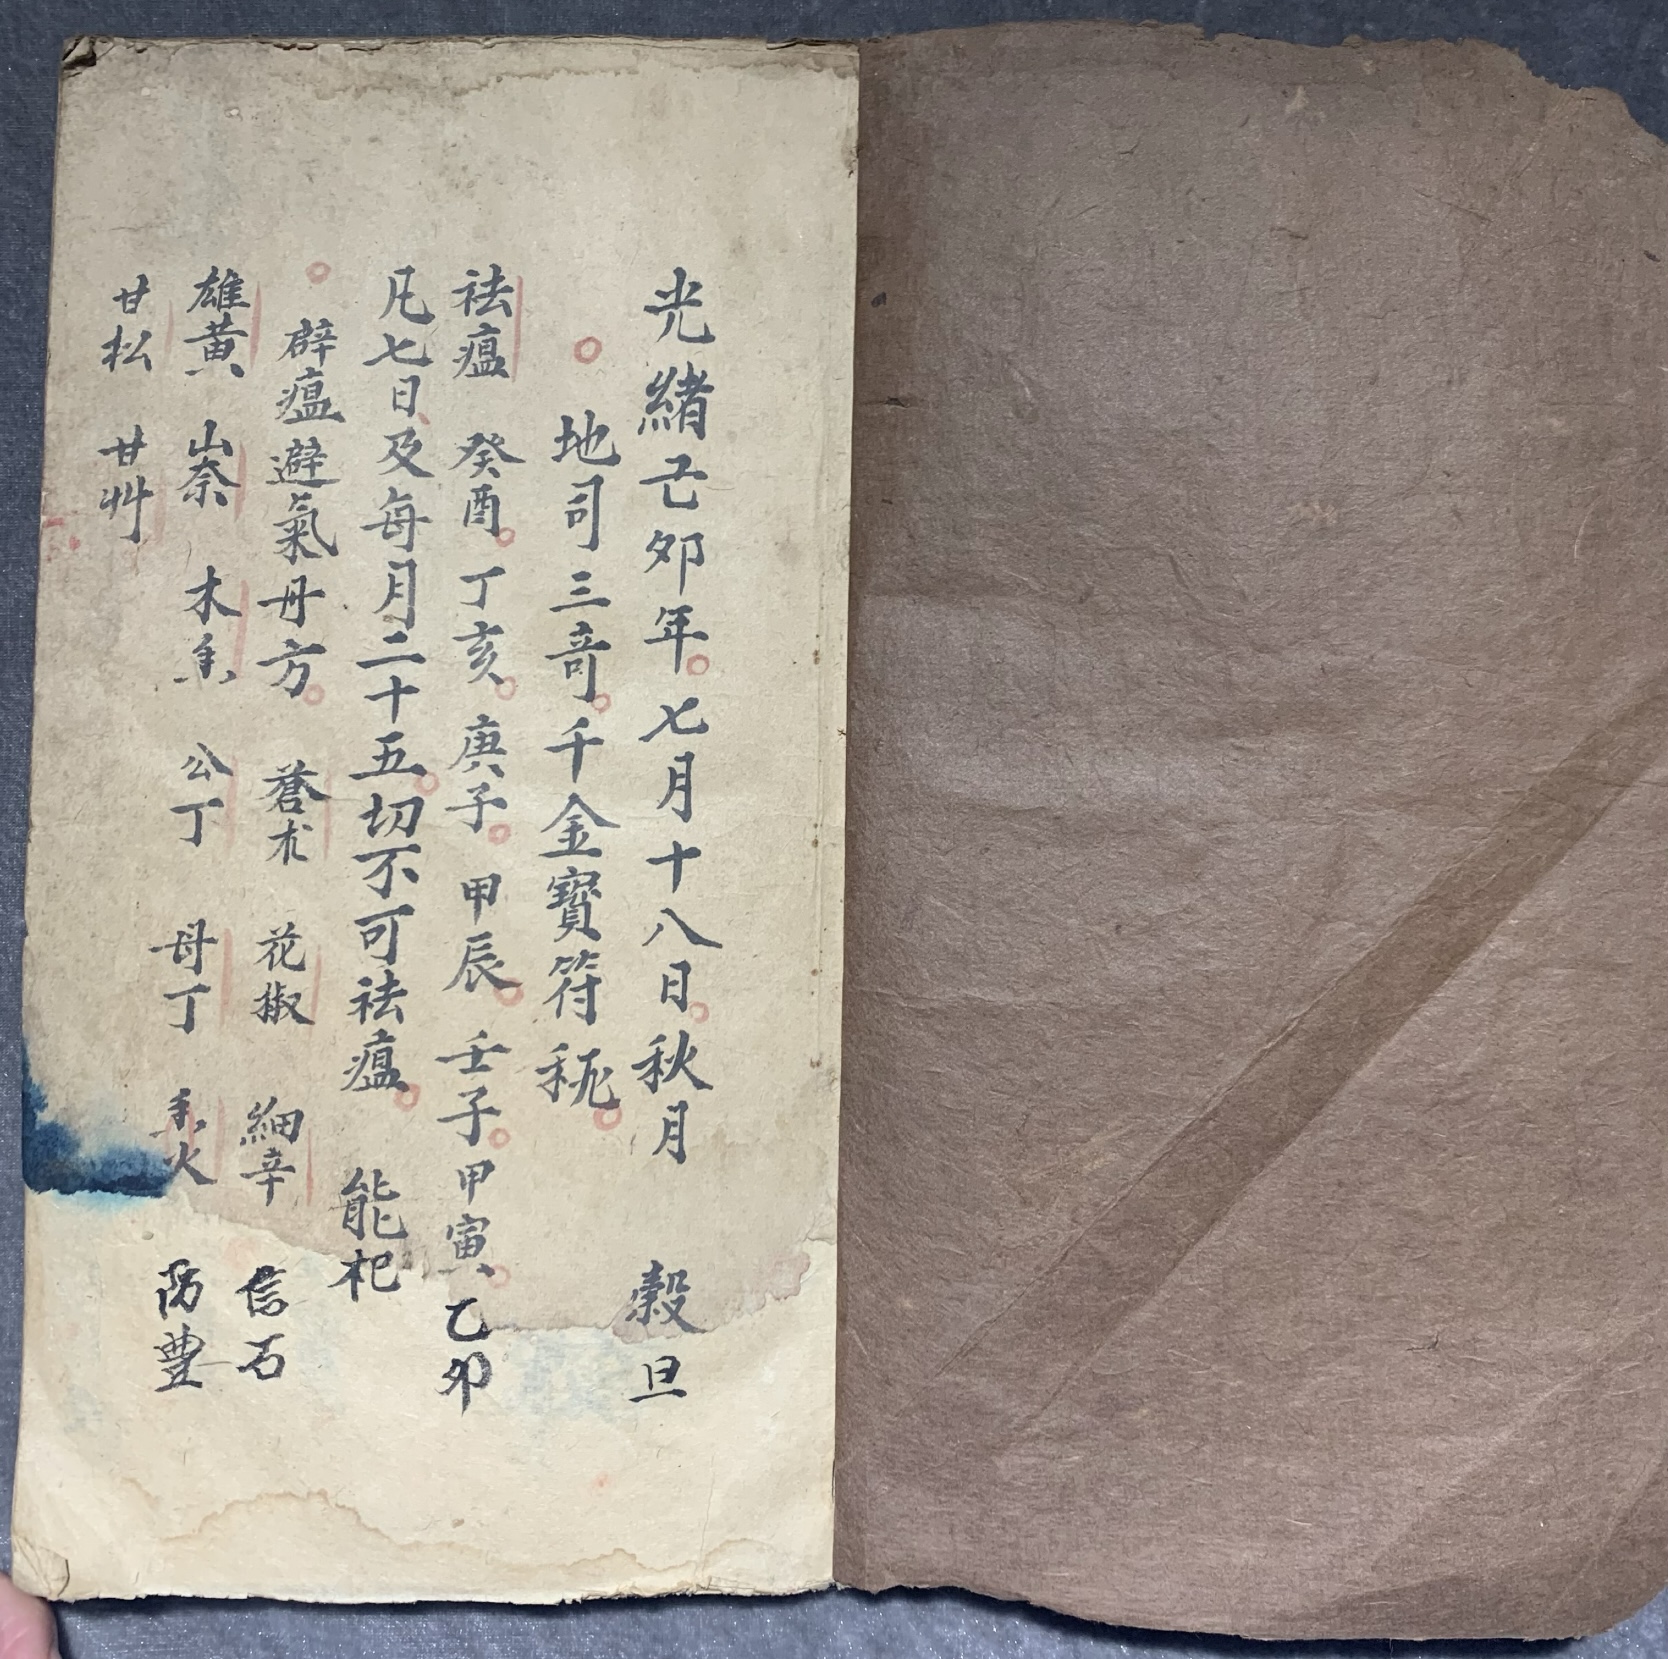 光緒己卯年七月十八日秋月 穀旦
地司三竒千金寳符秘
祛瘟 癸酉 丁亥 庚子 甲辰 壬子 甲寅 乙卯
凡七日及每月二十五切不可祛瘟 能杞
辟瘟避氣丹方 蒼朮 花椒 細辛 信石
雄黃 山奈 木香 公丁 母丁 火 防豊
甘松 甘艸